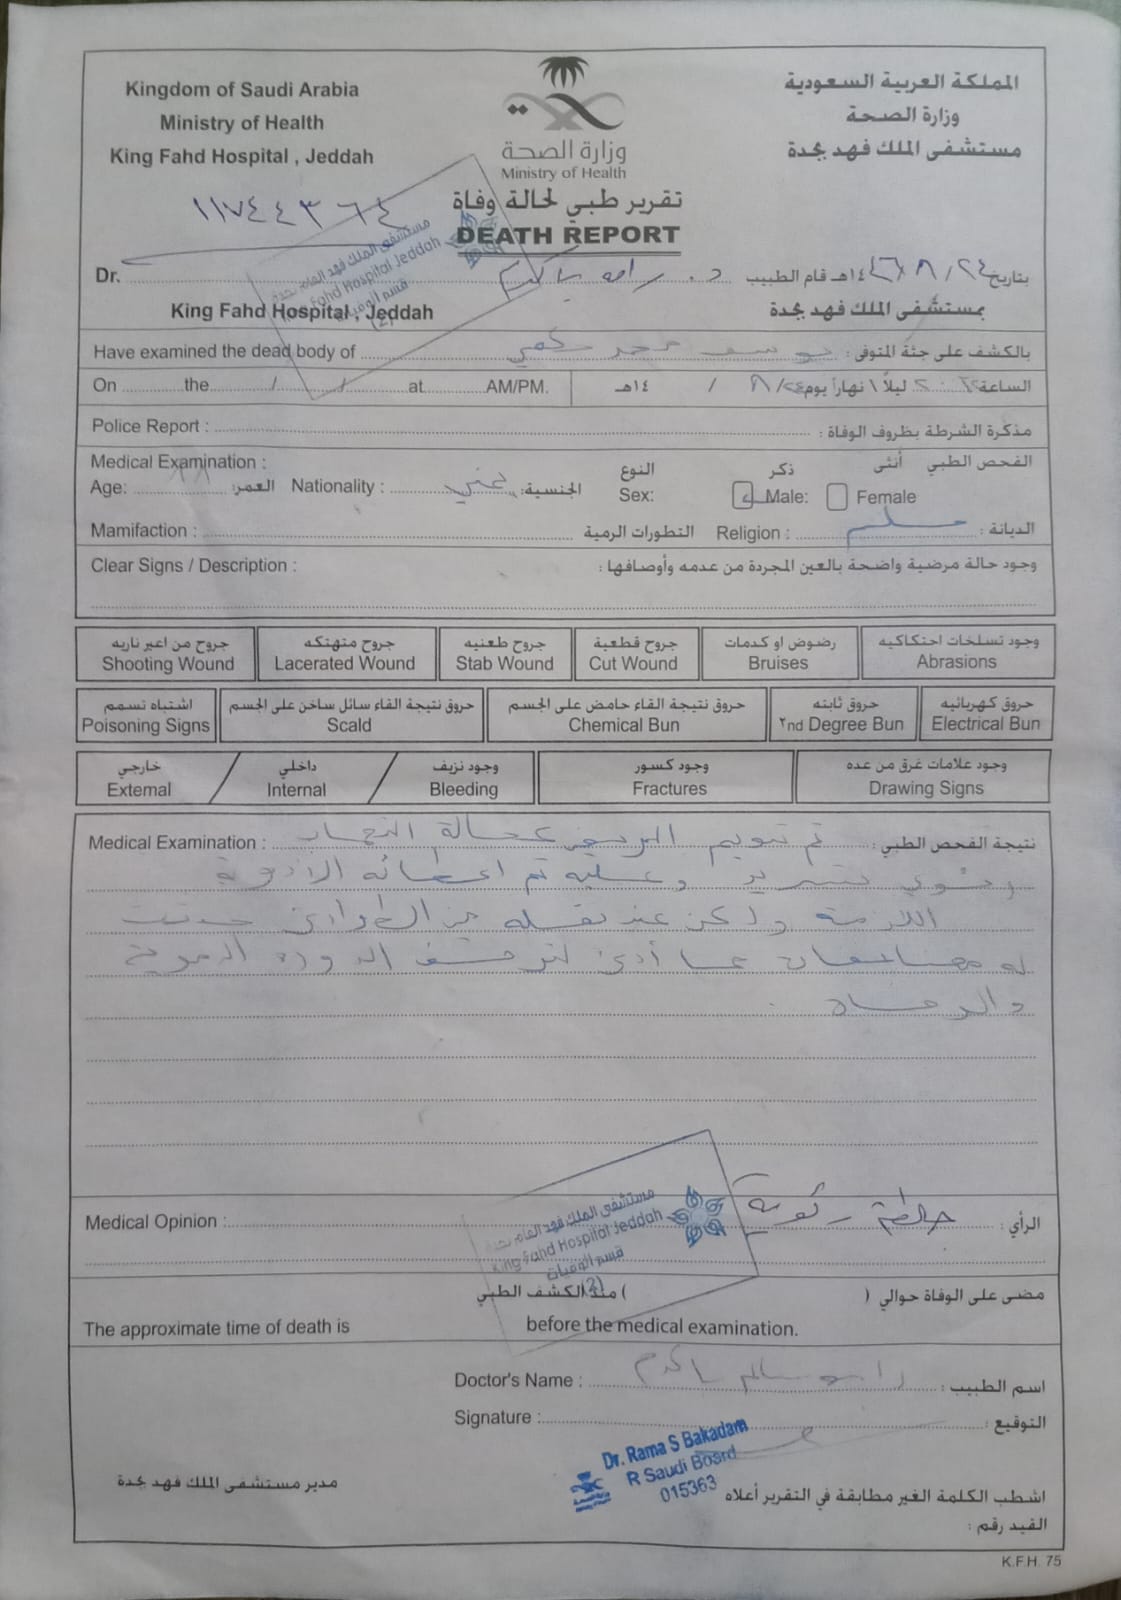 Kingdom of Saudi Arabia
Ministry of Health
King Fahd Hospital , Jeddah
وزارة الصحة
Ministry of Health
المملكة العربية السعودية
وزارة الصحة
مستشفى الملك فهد بجدة
١١٧٤٤٣٦٤
تقرير طبي لحالة وفاة
DEATH REPORT
مستشفى الملك فهد العام بجدة
King Fahd Hospital Jeddah
قسم الوفيات
(2)
Dr. د. بتاريخ ٢٤ / ٨ / ١٤٤٦هـ قام الطبيب
King Fahd Hospital , Jeddah بمستشفى الملك فهد بجدة
Have examined the dead body of يوسف محمد بالكشف على جثة المتوفى :
On the / / at AM/PM. الساعة ليلاً \ نهاراً يوم / ١٤هـ
Police Report : مذكرة الشرطة بظروف الوفاة :
Medical Examination : النوع ذكر أنثى الفحص الطبي
Age: العمر: Nationality : يمني الجنسية: Sex: Male: Female
Mamifaction : التطورات الرمية Religion : مسلم الديانة :
Clear Signs / Description : وجود حالة مرضية واضحة بالعين المجردة من عدمه وأوصافها :
جروح من اعير ناريه جروح متهتكه جروح طعنيه جروح قطعية رضوض او كدمات وجود تسلخات احتكاكيه
Shooting Wound Lacerated Wound Stab Wound Cut Wound Bruises Abrasions
اشتباه تسمم حروق نتيجة القاء سائل ساخن على الجسم حروق نتيجة القاء حامض على الجسم حروق ثابته حروق كهربائيه
Poisoning Signs Scald Chemical Bun ٢nd Degree Bun Electrical Bun
خارجي داخلي وجود نزيف وجود كسور وجود علامات غرق من عده
External Internal Bleeding Fractures Drawing Signs
Medical Examination : تم تنويم المريض بحالة التهاب نتيجة الفحص الطبي :
رئوي وعليه تم اعطائه الادوية
اللازمة ولكن عند نقله من الطوارئ حدثت
له مضاعفات مما أدى لتوقف الدورة الدموية
والوفاة .
Medical Opinion : جلطة رئوية الرأي :
مستشفى الملك فهد العام بجدة
King Fahd Hospital Jeddah
قسم الوفيات
(2)
مضى على الوفاة حوالي ( ) منذ الكشف الطبي
The approximate time of death is before the medical examination.
Doctor's Name : سالم اسم الطبيب :
Signature : التوقيع :
Dr. Rama S Bakadam
R Saudi Board
015363
مدير مستشفى الملك فهد بجدة
اشطب الكلمة الغير مطابقة في التقرير أعلاه
القيد رقم :
K.F.H. 75